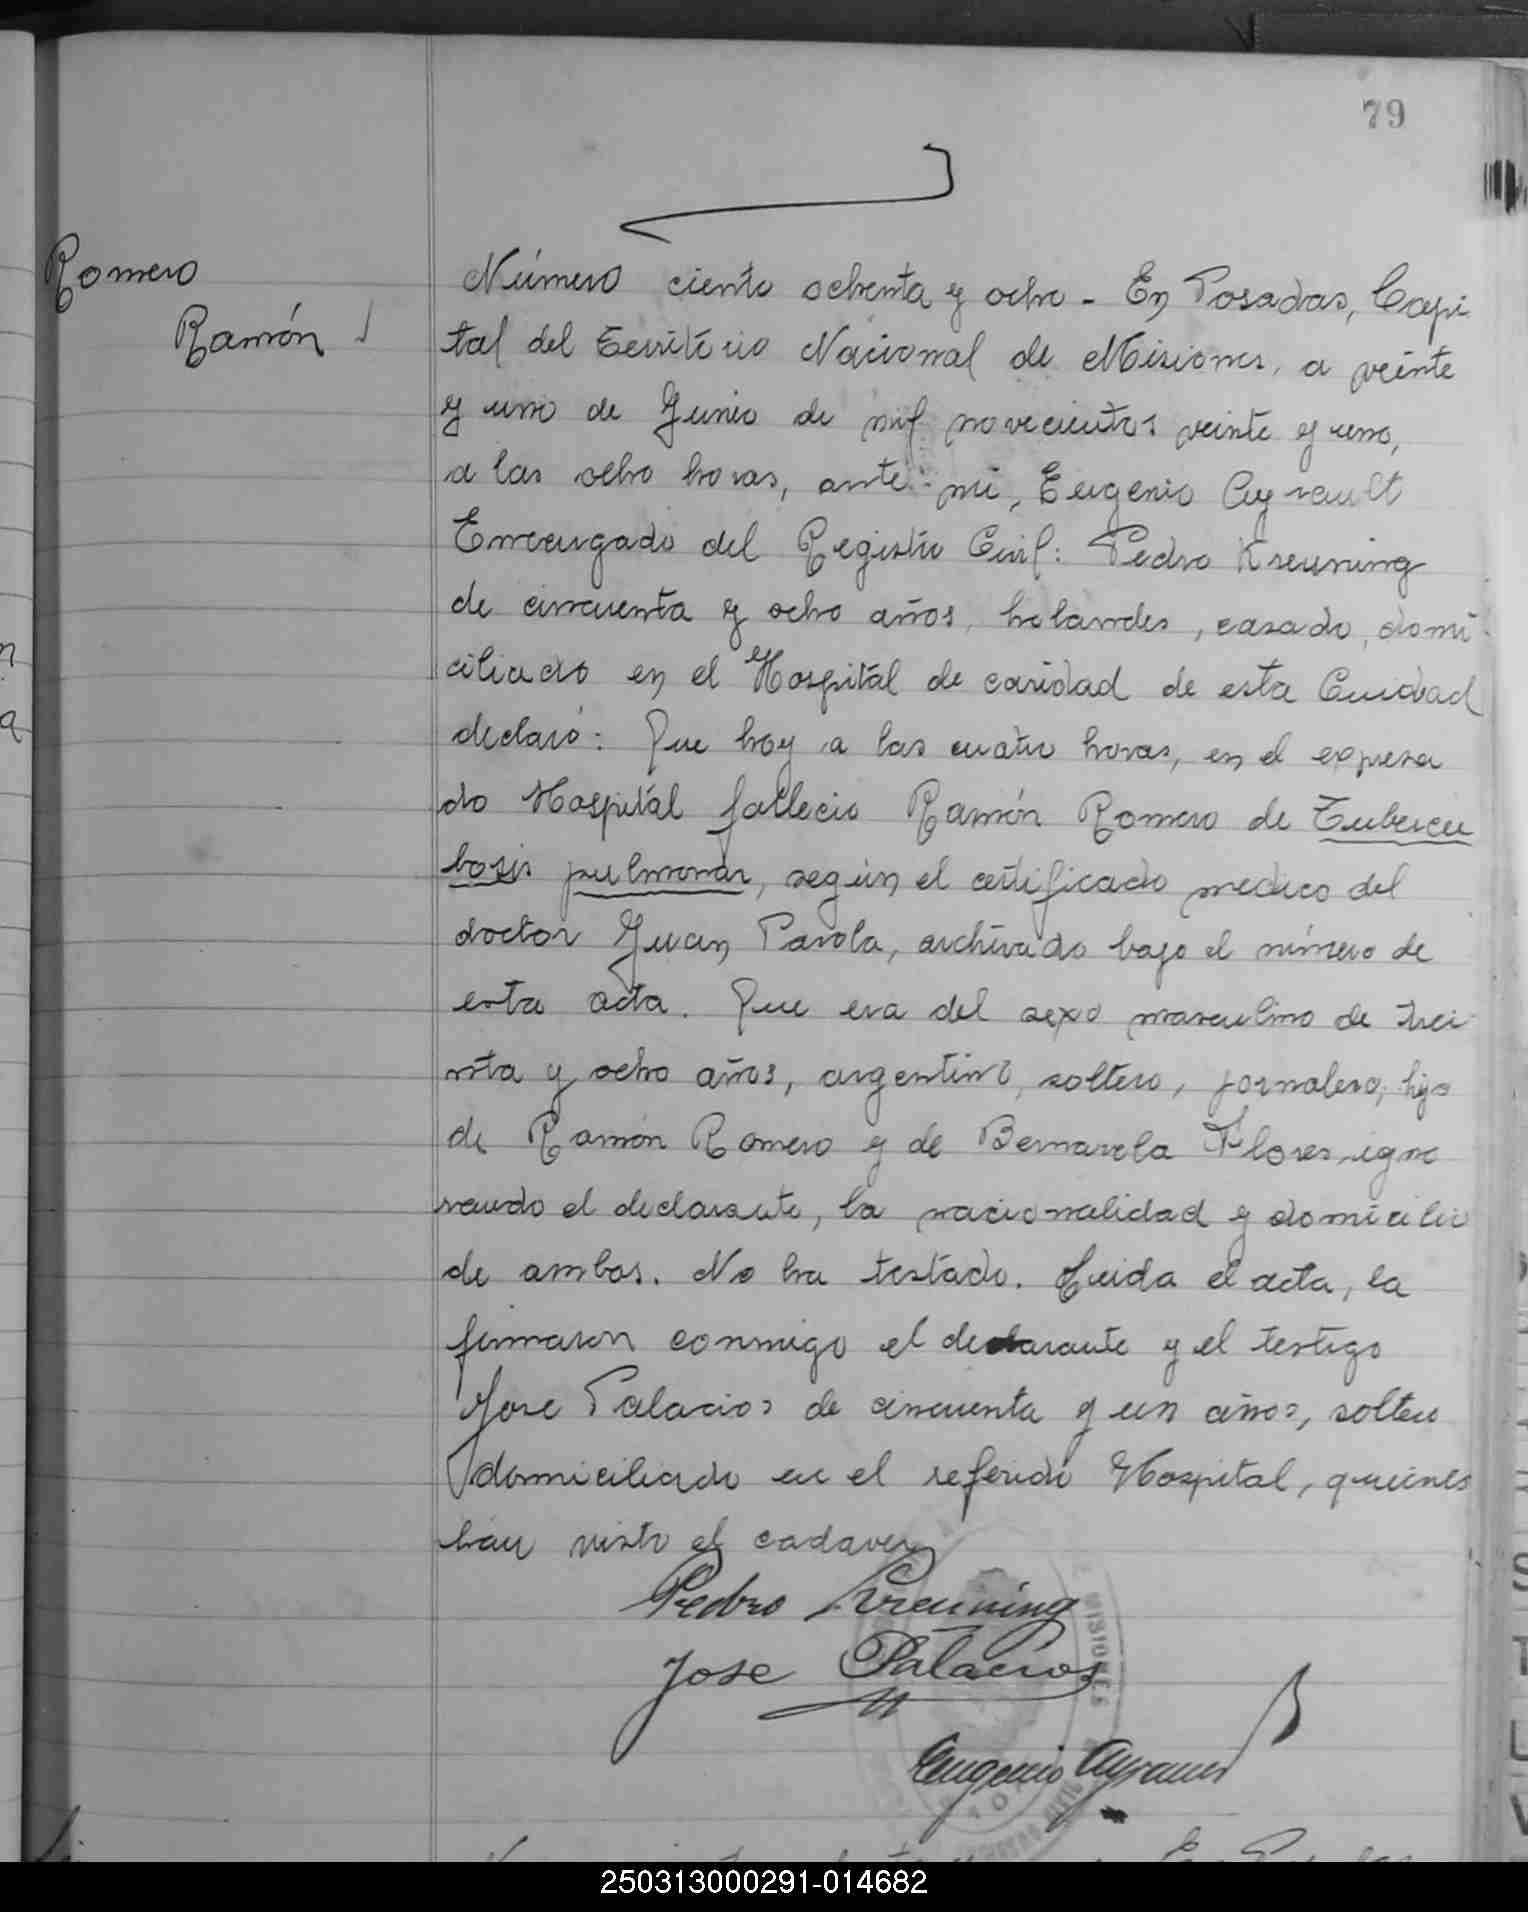 79
Romero
Ramón
Número ciento ochenta y ocho - En Posadas, Capi
tal del Territorio Nacional de Misiones, a veinte
y uno de Junio de mil novecientos veinte y uno,
a las ocho horas, ante mi, Eugenio Ayrault
Encargado del Registro Civil: Pedro Kreuning
de cincuenta y ocho años, holandes, casado, domi
ciliado en el Hospital de caridad de esta Ciudad
declaró: Que hoy a las cuatro horas, en el expresa
do Hospital fallecio Ramón Romero de Tubercu
losis pulmonar, según el certificado medico del
doctor Juan Parola, archivado bajo el número de
esta acta. Que era del sexo masculino de trei
nta y ocho años, argentino, soltero, jornalero, hijo
de Ramón Romero y de Bernarda Flores, igno
rando el declarante, la nacionalidad y domicilio
de ambos. No ha testado. Leida el acta, la
firmaron conmigo el declarante y el testigo
Jose Palacios de cincuenta y un años, soltero
domiciliado en el referido Hospital, quienes
han visto el cadaver
Pedro Kreuning
Jose Palacios
Eugenio Ayrault
MISIONES
250313000291-014682